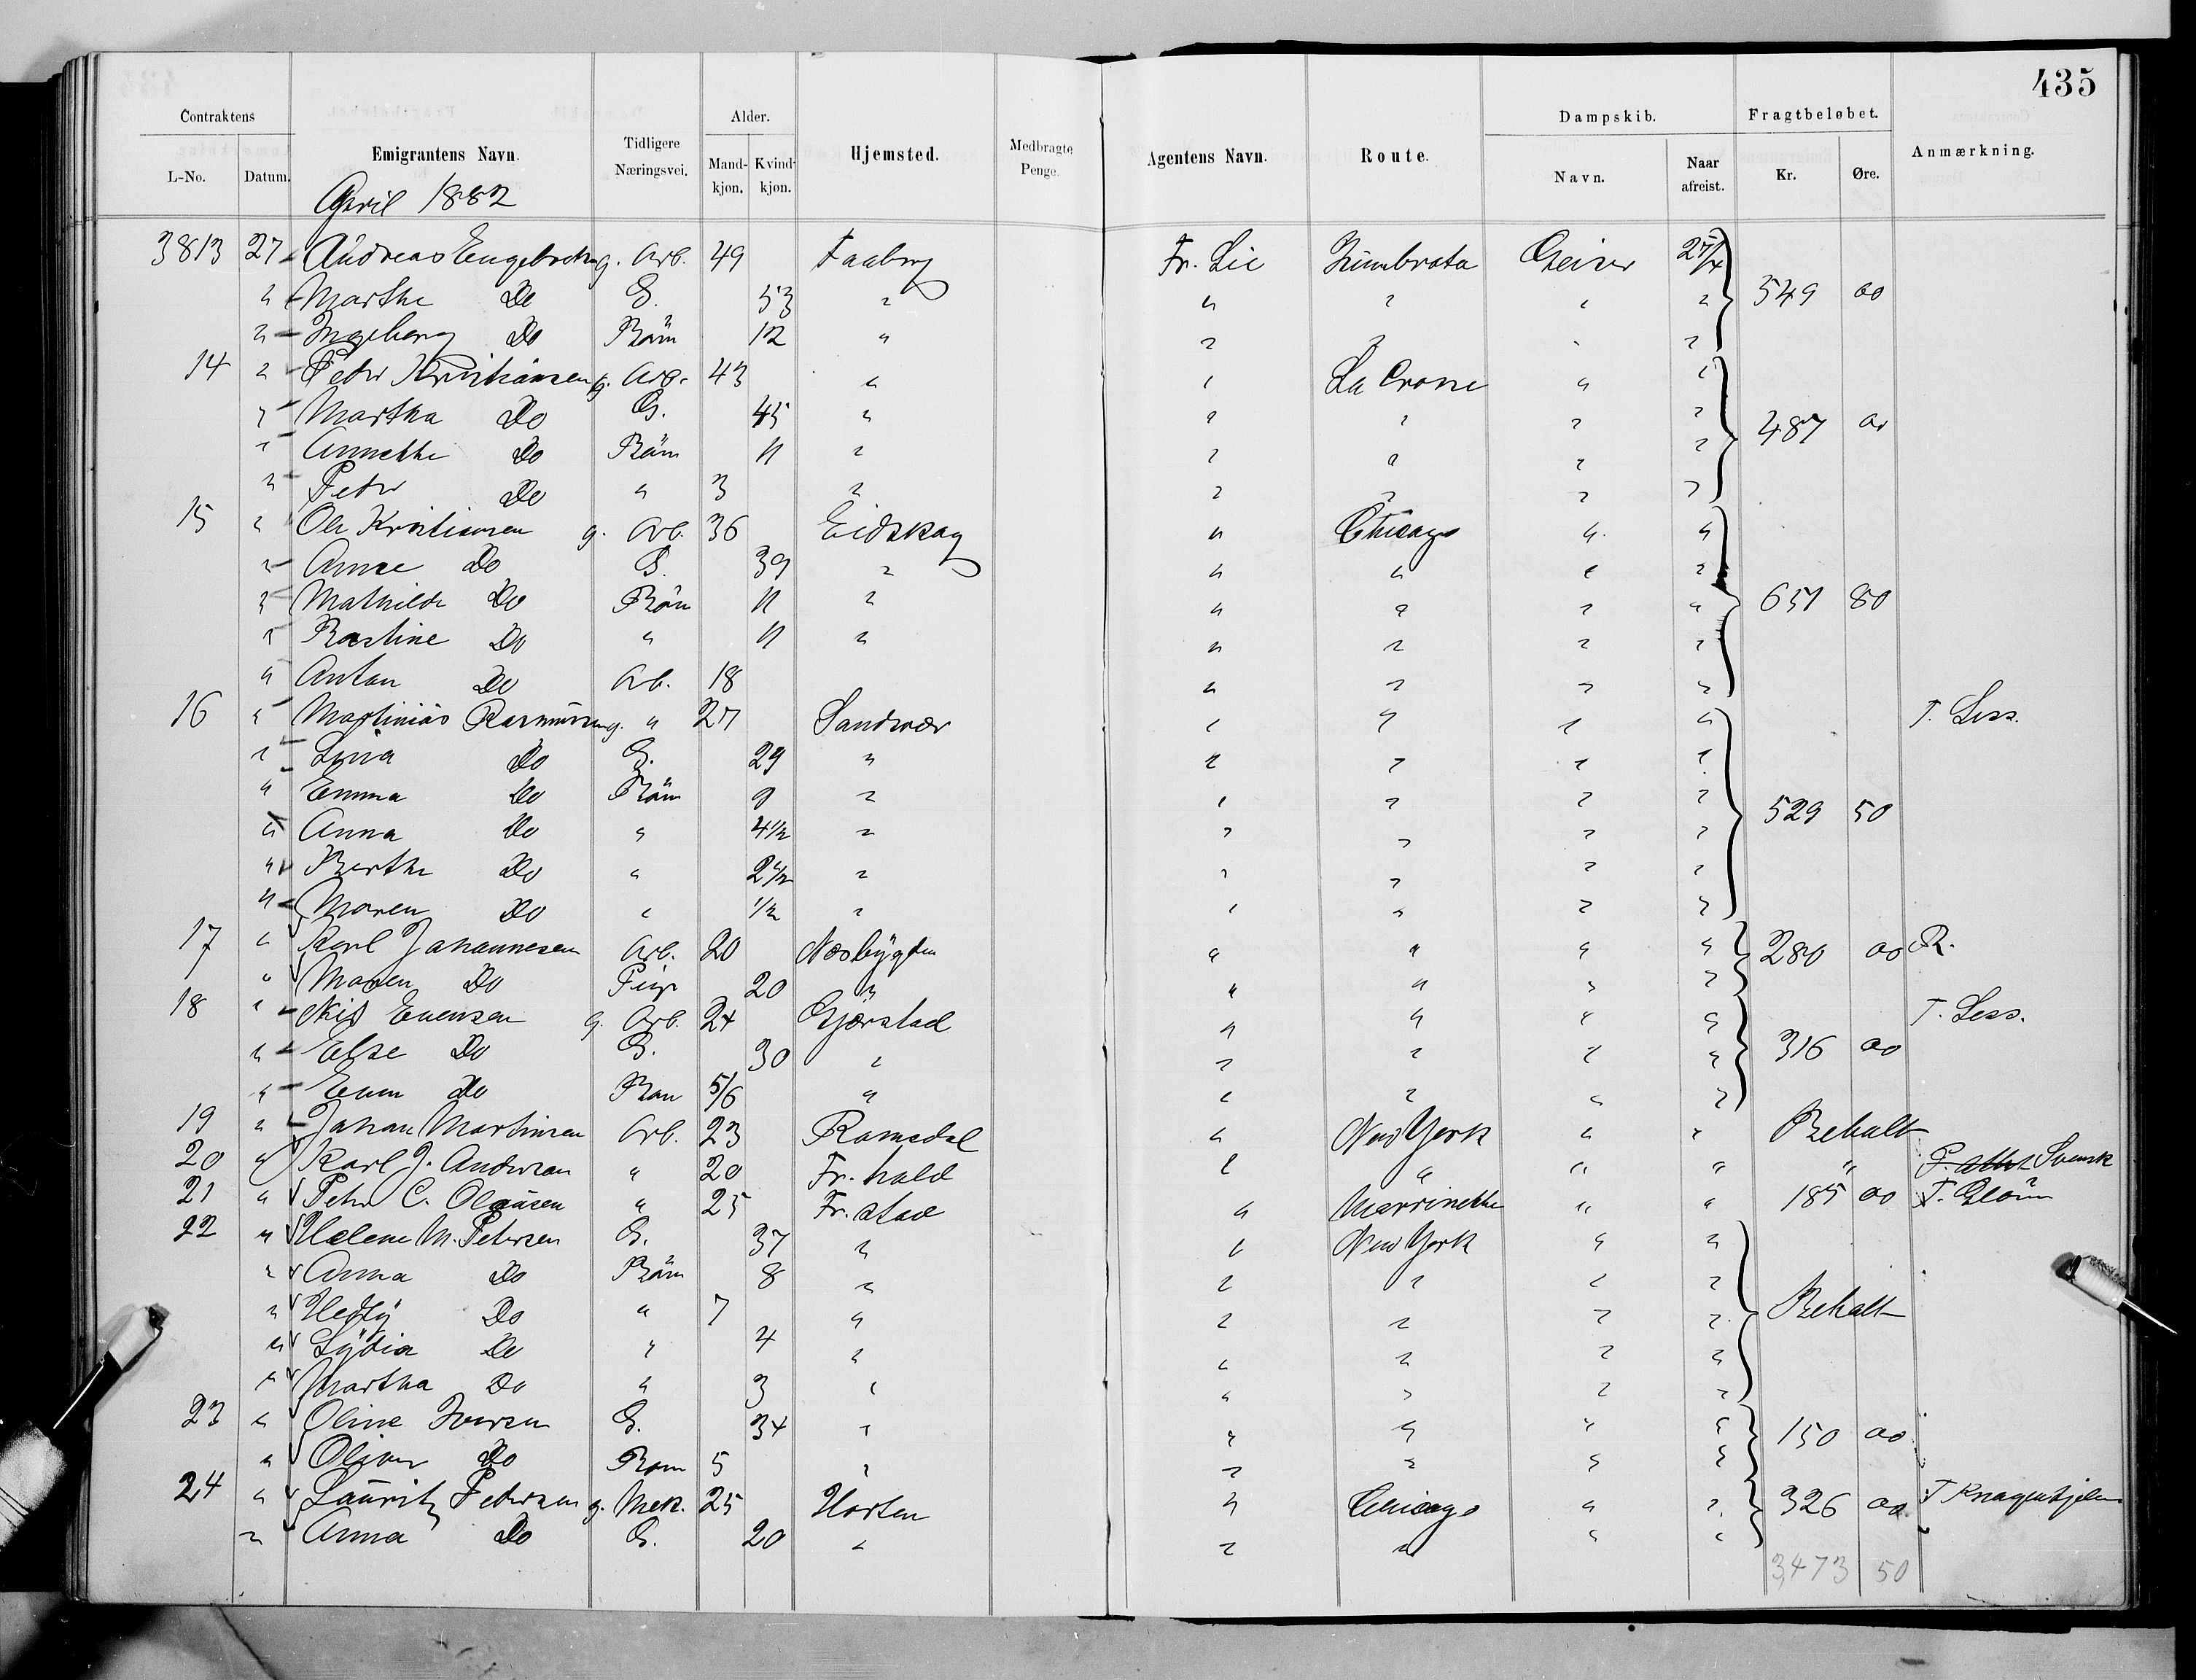 435
Contraktens Emigrantens Navn. Tidligere Næringsvei. Alder. Hjemsted. Medbragte Penge. Agentens Navn. Route. Dampskib. Fragtbeløbet. Anmærkning.
L-No. Datum. Mand-kjøn. Kvind-kjøn. Navn. Naar afreist. Kr. Øre.
April 1882
3813 27 Andreas g. Arb. 49 Faaberg Fr. Lie Zumbrota Geiser 27/4
" Marthe Do G. 53 " " " " " 549 00
" Ingeborg Do Barn 12 " " " " "
14 " Peder Kristiansen g. Arb. 43 " " La Crosse " "
" Martha Do G. 45 " " " " " 487 00
" Annethe Do Barn 11 " " " " "
" Peder Do " 3 " " " " "
15 " Ole Kristiansen g. Arb. 36 Eidskog " Chicago " "
" Anne Do G. 39 " " " " "
" Mathilde Do Barn 11 " " " " " 651 80
" Do " 11 " " " " "
" Anton Do Arb. 18 " " " "
16 " Martinius Rasmussen g. " 27 Sandsvær " " " " T. Sess.
" Lina Do G. 29 " " " " "
" Emma Do Barn 9 " " " " "
" Anna Do " 4 1/2 " " " " " 529 50
" Berthe Do " 2 1/2 " " " " "
" Maren Do " 1/2 " " " " "
17 " Karl Johannesen Arb. 20 Næsbygden " " " " 280 00 R.
" Maren Do Pige 20 " " " " "
18 " Nils Evensen g. Arb. 24 Gjerstad " " " " T. Sess.
" Else Do G. 30 " " " " " 316 00
" Even Do Barn 5/6 " " " " "
19 " Johan Martinsen Arb. 23 Romsdal " New York " " Betalt
20 " Karl J. Andersen " 20 Fr.hald " " " " " Svensk
21 " Peder C. Olausen " 25 Fr.stad " Marrinette " " 185 00 T. Glöm
22 " Helene M. Petersen G. 37 " " New York " "
" Anna Do Barn 8 " " " " "
" Do " 7 " " " " " Betalt
" Lydia Do " 4 " " " " "
" Martha Do " 3 " " " " "
23 " Oline Iversen G. 34 " " " " " 150 00
" Oliver Do Barn 5 " " " " "
24 " Lauritz Petersen g. Mek. 25 Horten " Chicago " " 326 00
" Anna Do G. 20 " " " " "
3,473 50